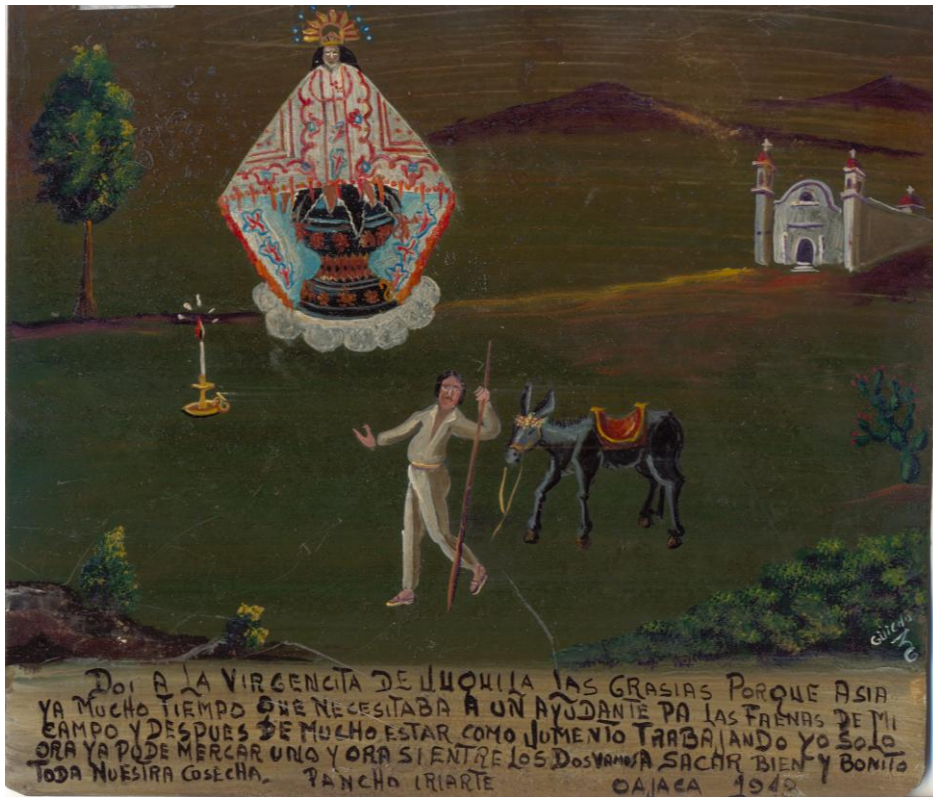 Güicho
DOI A LA VIRGENCITA DE JUQUILA LAS GRASIAS PORQUE ASIA
YA MUCHO TIEMPO QUE NECESITABA A UN AYUDANTE PA LAS FAENAS DE MI
CAMPO Y DESPUES DE MUCHO ESTAR COMO JUMENTO TRABAJANDO YO SOLO
ORA YA PUDE MERCAR UNO Y ORA SI ENTRE LOS DOS VAMOS A SACAR BIEN Y BONITO
TODA NUESTRA COSECHA. PANCHO IRIARTE OAJACA